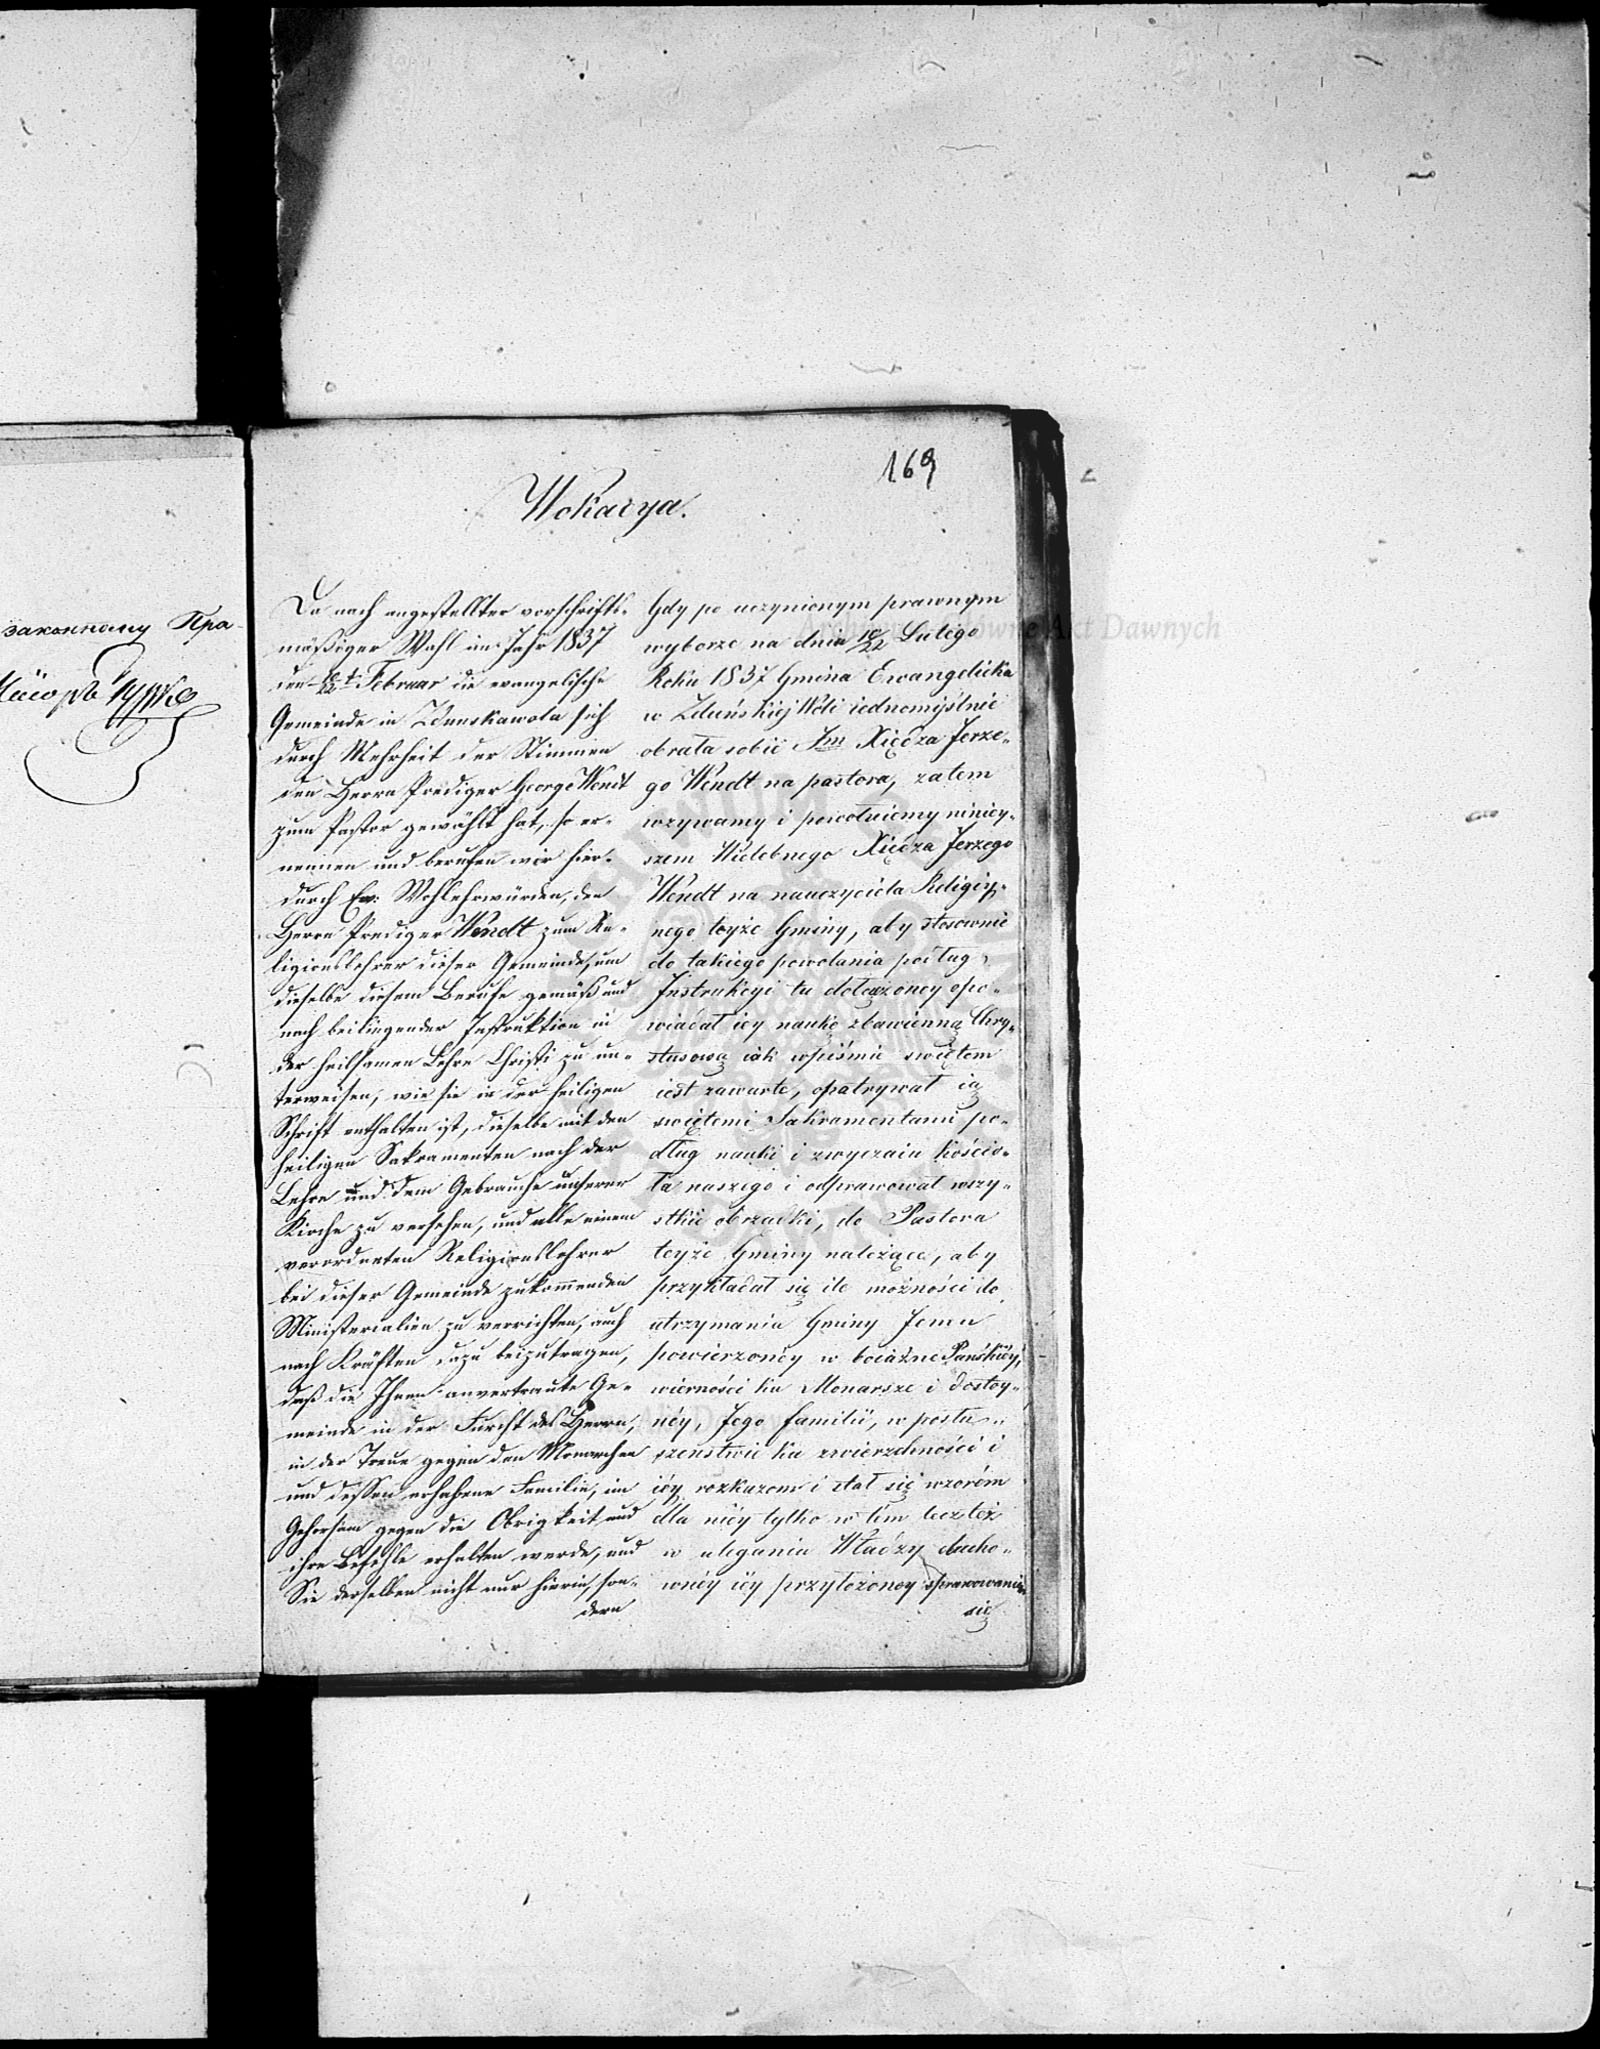 169
Wokacya.
Da nach angestellter vorschrifts-
mäßiger Wahl im Jahr 1837
den 10/22t Februar die evangelische
Gemeinde in Zdunskawola sich
durch Mehrheit der Stimmen
den Herrn Prediger George Wendt
zum Pastor gewählt hat, so er-
nennen und berufen wir hier-
durch Ew: Wohlehrwürden, den
Herrn Prediger Wendt zum Re-
ligionslehrer dieser Gemeinde, um
dieselbe diesem Berufe gemäß und
nach beiliegender Instruktion in
der heilsamen Lehre Christi zu un-
terweisen, wie sie in der heiligen
Schrift enthalten ist, dieselbe mit den
heiligen Sakramenten nach der
Lehre und dem Gebrauche unserer
Kirche zu versehen, und alle einem
verordneten Religionslehrer
bei dieser Gemeinde zukommenden
Ministerialien zu verrichten, auch
nach Kräften dazu beizutragen,
daß die Ihnen anvertraute Ge-
meinde in der Furcht des Herrn,
in der Treue gegen den Monarchen
und dessen erhabene Familie, im
Gehorsam gegen die Obrigkeit und
ihre Befehle erhalten werde, und
Sie derselben nicht nur hierin, son-
dern
Gdy po uczynionym prawnym
wyborze na dniu 10/22 Lutego
Roku 1837 Gmina Ewangelicka
w Zduńskiéj Woli iednomyślnie
obrała sobie Jm Xiędza Jerze-
go Wendt na pastora, zatem
wzywamy i powołuiemy niniey-
szem Wielebnego Xiędza Jerzego
Wendt na nauczyciela Religiy-
nego teyże Gminy, aby stosownie
do takiego powołania podług
Instrukcyi tu dołączoney opo-
wiadał iey naukę zbawienną Chry-
stusową iak w piśmie swiętem
iest zawarte, opatrywał ią
swiętemi Sakramentami po-
dług nauki i zwyczaiu kościo-
ła naszego i odprawował wszy-
stkie obrządki, do Pastora
teyże Gminy należące, aby
przykładał się ile możności do
utrzymania Gminy Jemu
powierzonéy w boiaźni Pańskiéy,
wierności ku Monarsze i dostoy-
néy, Jego familii, w posłu-
szeństwie ku zwierzchności i
iéy rozkazom i stał się wzorém
dla niéy tylko w tém lecz też
w uleganiu Władzy ducho-
wnéy iéy przyłożoney sprawowania
się
законному Пра-
Archiwum Główne Akt Dawnych